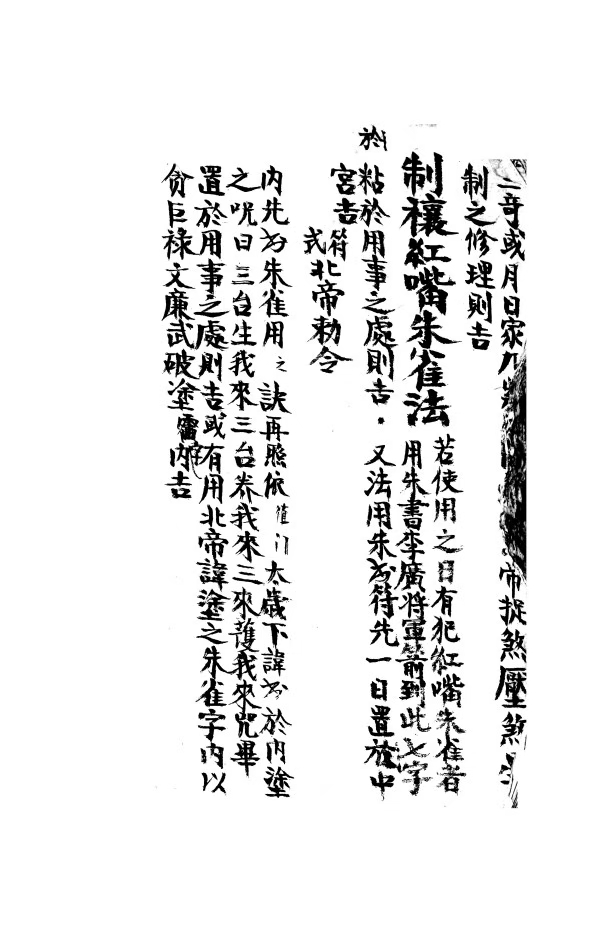 二奇或月日家八 帝捉煞壓煞
制之修理則吉
制禳紅嘴朱雀法
若使用之日有犯紅嘴朱雀者
用朱書李廣將軍箭到此七字
於
粘於用事之處則吉．又法用朱書符先一日置於中
宮吉
符式
北帝勅令
內先書朱雀用之訣再照依值日太歲下諱書於內塗
之咒曰三台生我來三台養我來三來護我來咒畢
置於用事之處則吉或有用北帝諱塗之朱雀字內以
貪巨祿文廉武破塗內吉